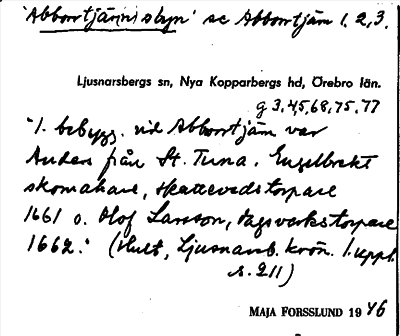 'Abborrtjär(n)stugn' se Abborrtjärn 1. 2, 3.
Ljusnarsbergs sn, Nya Kopparbergs hd, Örebro län.
g 3,45,68,75,77
"1. bebygg. vid Abborrtjärn var
Anders från St. Tuna, Engelbrekt
skomakare, skattevedstorpare
1661 o. Olof Larsson, dagsverkstorpare
1662." (Hult, Ljusnarsb. krön. 1. uppl.
s. 211)
MAJA FORSSLUND 1946